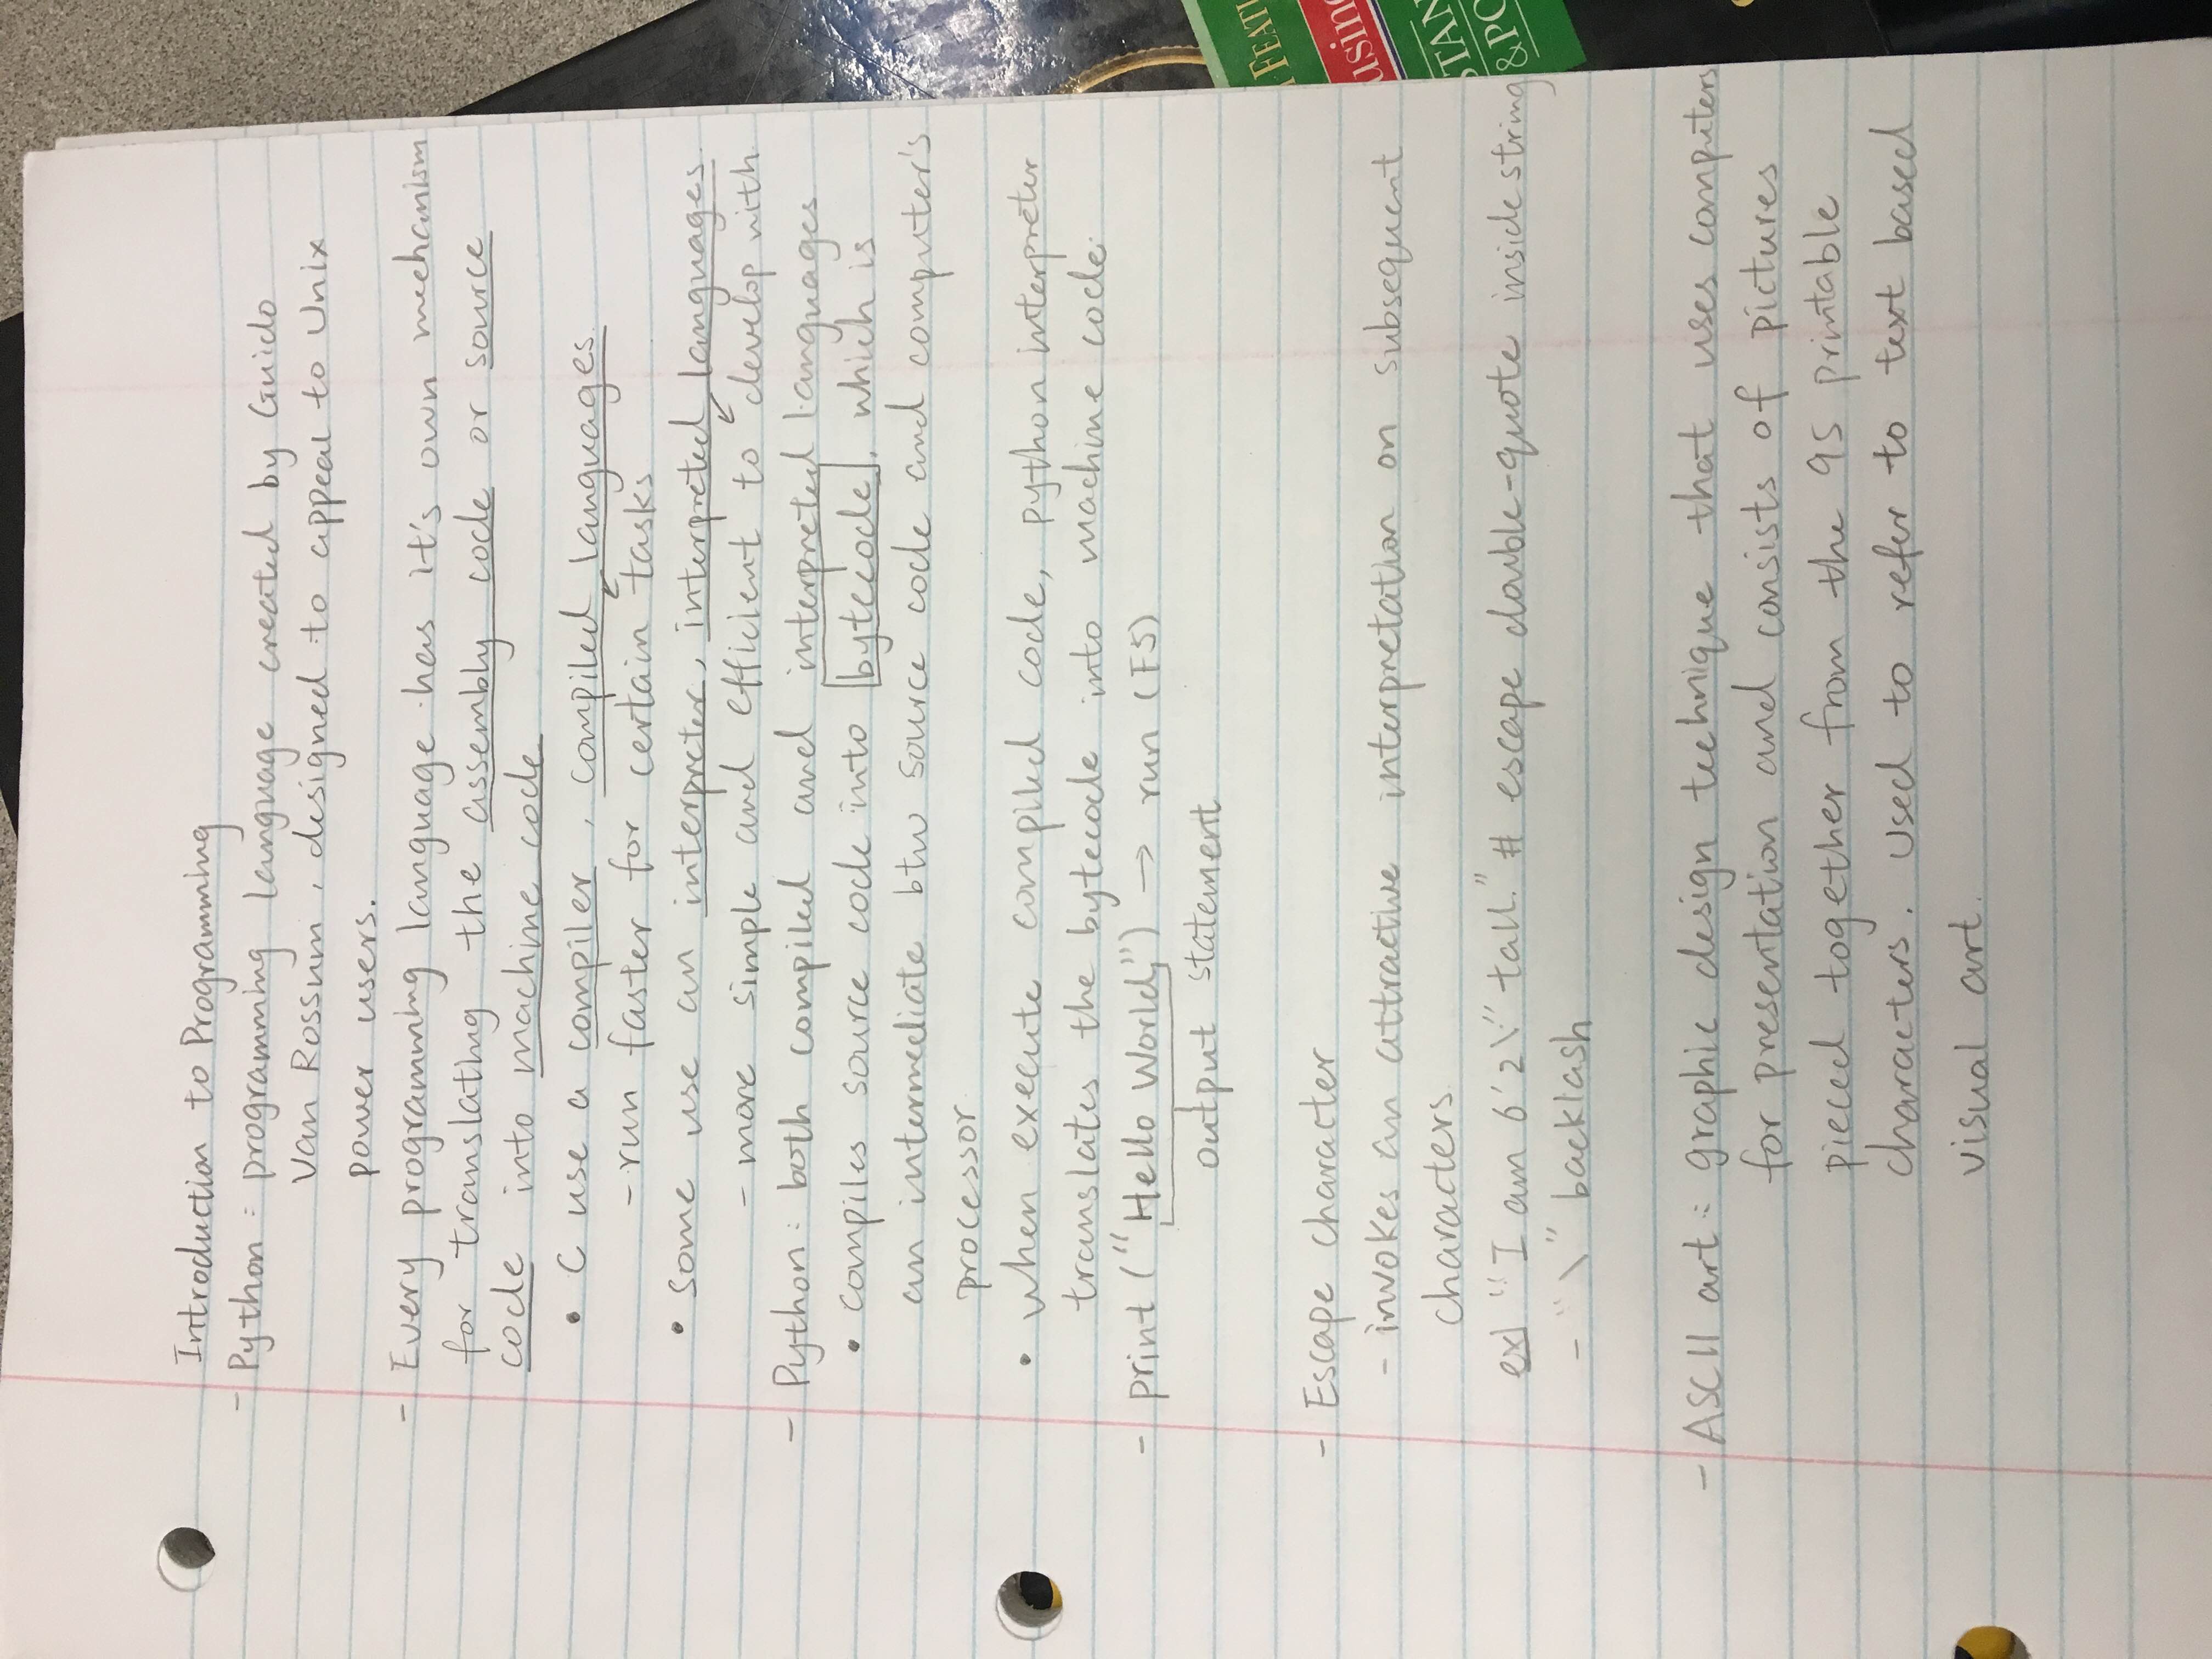 Introduction to Programming
- Python: programming language created by Guido
Van Rossum, designed to appeal to Unix
power users.
- Every programming language has it's own mechanism
for translating the assembly code or source
code into machine code
• C use a compiler, compiled languages.
- run faster for certain tasks
• some use an interpreter, interpreted languages
- more simple and efficient to develop with
- Python: both compiled and interpreted languages
• compiles source code into bytecode, which is
an intermediate btw source code and computer's
processor.
• when execute compiled code, python interpreter
translates the bytecode into machine code.
- print ("Hello World,") → run (F5)
output statement
- Escape character
- invokes an attractive interpretation on subsequent
characters.
ex) "I am 6'2\" tall." # escape double-quote inside string
- "\" backlash
- ASCII art: graphic design technique that uses computers
for presentation and consists of pictures
pieced together from the 95 printable
characters. Used to refer to text based
visual art.
FEAT
using
STAN
& PO